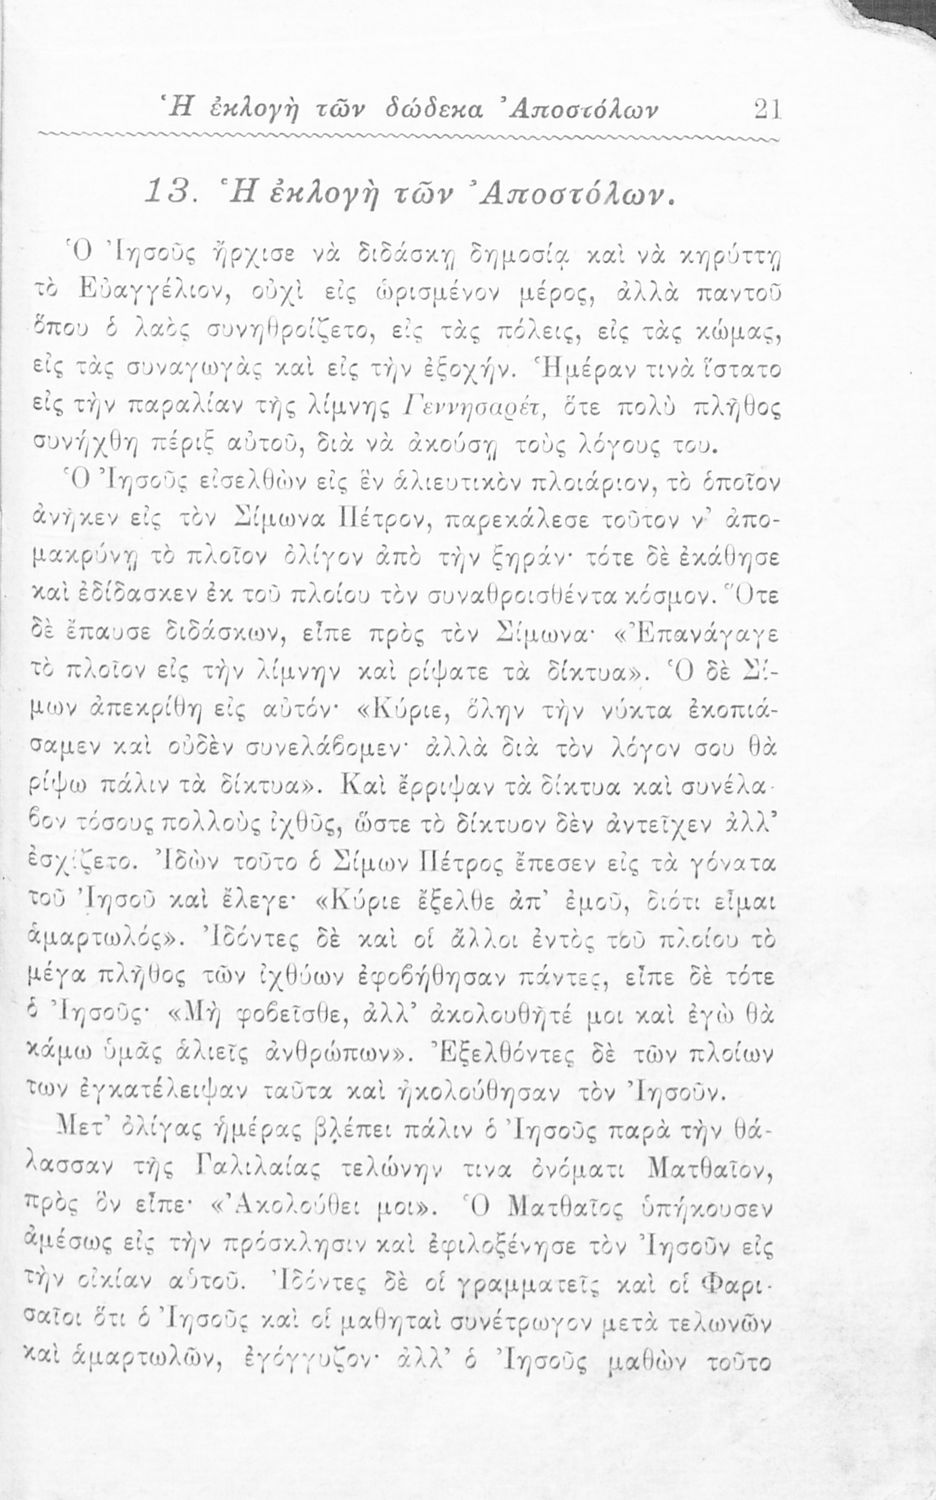 Ἡ ἐκλογὴ τῶν δώδεκα Ἀποστόλων 21
13. Ἡ ἐκλογὴ τῶν Ἀποστόλων.
Ὁ Ἰησοῦς ἤρχισε νὰ διδάσκῃ δημοσίᾳ καὶ νὰ κηρύττῃ
τὸ Εὐαγγέλιον, οὐχὶ εἰς ὡρισμένον μέρος, ἀλλὰ παντοῦ
ὅπου ὁ λαὸς συνηθροίζετο, εἰς τὰς πόλεις, εἰς τὰς κώμας,
εἰς τὰς συναγωγὰς καὶ εἰς τὴν ἐξοχήν. Ἡμέραν τινὰ ἵστατο
εἰς τὴν παραλίαν τῆς λίμνης Γεννησαρέτ, ὅτε πολὺ πλῆθος
συνήχθη πέριξ αὐτοῦ, διὰ νὰ ἀκούσῃ τοὺς λόγους του.
Ὁ Ἰησοῦς εἰσελθὼν εἰς ἓν ἁλιευτικὸν πλοιάριον, τὸ ὁποῖον
ἀνῆκεν εἰς τὸν Σίμωνα Πέτρον, παρεκάλεσε τοῦτον ν’ ἀπο-
μακρύνῃ τὸ πλοῖον ὀλίγον ἀπὸ τὴν ξηράν· τότε δὲ ἐκάθησε
καὶ ἐδίδασκεν ἐκ τοῦ πλοίου τὸν συναθροισθέντα κόσμον. Ὅτε
δὲ ἔπαυσε διδάσκων, εἶπε πρὸς τὸν Σίμωνα· «Ἐπανάγαγε
τὸ πλοῖον εἰς τὴν λίμνην καὶ ρίψατε τὰ δίκτυα». Ὁ δὲ Σί-
μων ἀπεκρίθη εἰς αὐτόν· «Κύριε, ὅλην τὴν νύκτα ἐκοπιά-
σαμεν καὶ οὐδὲν συνελάβομεν· ἀλλὰ διὰ τὸν λόγον σου θὰ
ρίψω πάλιν τὰ δίκτυα». Καὶ ἔρριψαν τὰ δίκτυα καὶ συνέλα-
βον τόσους πολλοὺς ἰχθῦς, ὥστε τὸ δίκτυον δὲν ἀντεῖχεν ἀλλ’
ἐσχίζετο. Ἰδὼν τοῦτο ὁ Σίμων Πέτρος ἔπεσεν εἰς τὰ γόνατα
τοῦ Ἰησοῦ καὶ ἔλεγε· «Κύριε ἔξελθε ἀπ’ ἐμοῦ, διότι εἶμαι
ἁμαρτωλός». Ἰδόντες δὲ καὶ οἱ ἄλλοι ἐντὸς τοῦ πλοίου τὸ
μέγα πλῆθος τῶν ἰχθύων ἐφοβήθησαν πάντες, εἶπε δὲ τότε
ὁ Ἰησοῦς· «Μὴ φοβεῖσθε, ἀλλ’ ἀκολουθῆτέ μοι καὶ ἐγὼ θὰ
κάμω ὑμᾶς ἁλιεῖς ἀνθρώπων». Ἐξελθόντες δὲ τῶν πλοίων
των ἐγκατέλειψαν ταῦτα καὶ ἠκολούθησαν τὸν Ἰησοῦν.
Μετ’ ὀλίγας ἡμέρας βλέπει πάλιν ὁ Ἰησοῦς παρὰ τὴν θά-
λασσαν τῆς Γαλιλαίας τελώνην τινα ὀνόματι Ματθαῖον,
πρὸς ὃν εἶπε· «Ἀκολούθει μοι». Ὁ Ματθαῖος ὑπήκουσεν
ἀμέσως εἰς τὴν πρόσκλησιν καὶ ἐφιλοξένησε τὸν Ἰησοῦν εἰς
τὴν οἰκίαν αὑτοῦ. Ἰδόντες δὲ οἱ γραμματεῖς καὶ οἱ Φαρι-
σαῖοι ὅτι ὁ Ἰησοῦς καὶ οἱ μαθηταὶ συνέτρωγον μετὰ τελωνῶν
καὶ ἁμαρτωλῶν, ἐγόγγυζον· ἀλλ’ ὁ Ἰησοῦς μαθὼν τοῦτο